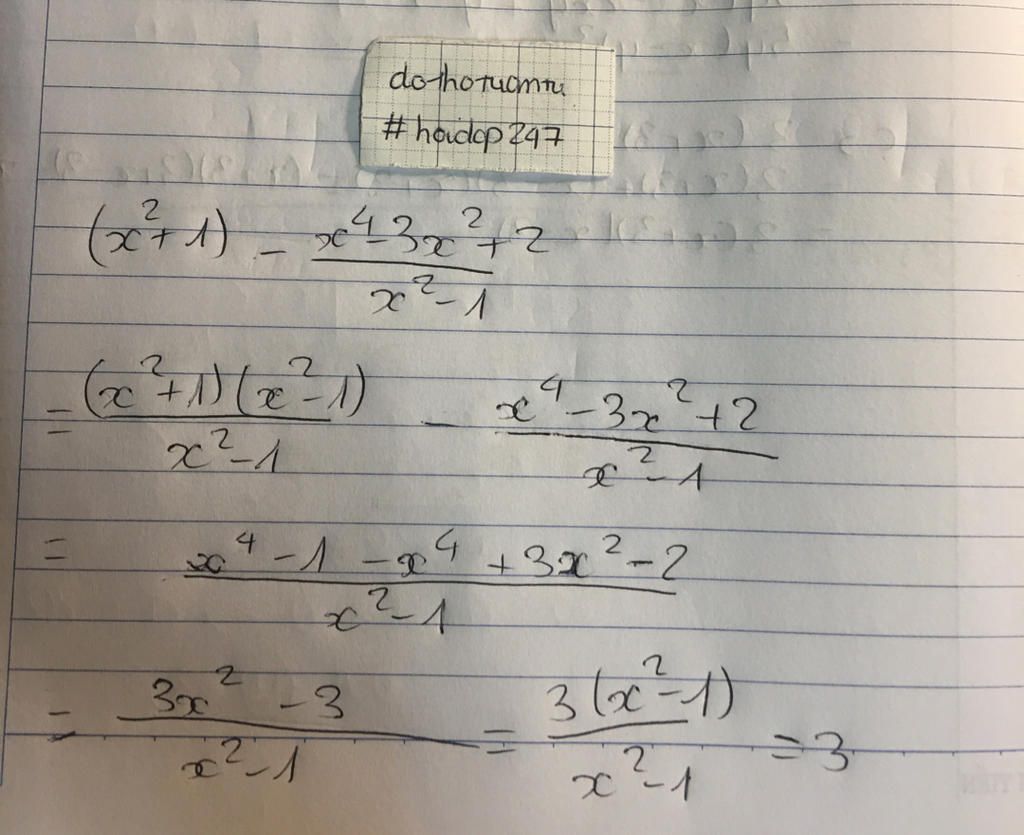 dothotuantu
#hoidap247
(x²+1) - (x⁴-3x²+2)/(x²-1)
= (x²+1)(x²-1)/(x²-1) - (x⁴-3x²+2)/(x²-1)
= (x⁴-1-x⁴+3x²-2)/(x²-1)
= (3x²-3)/(x²-1) = 3(x²-1)/(x²-1) = 3